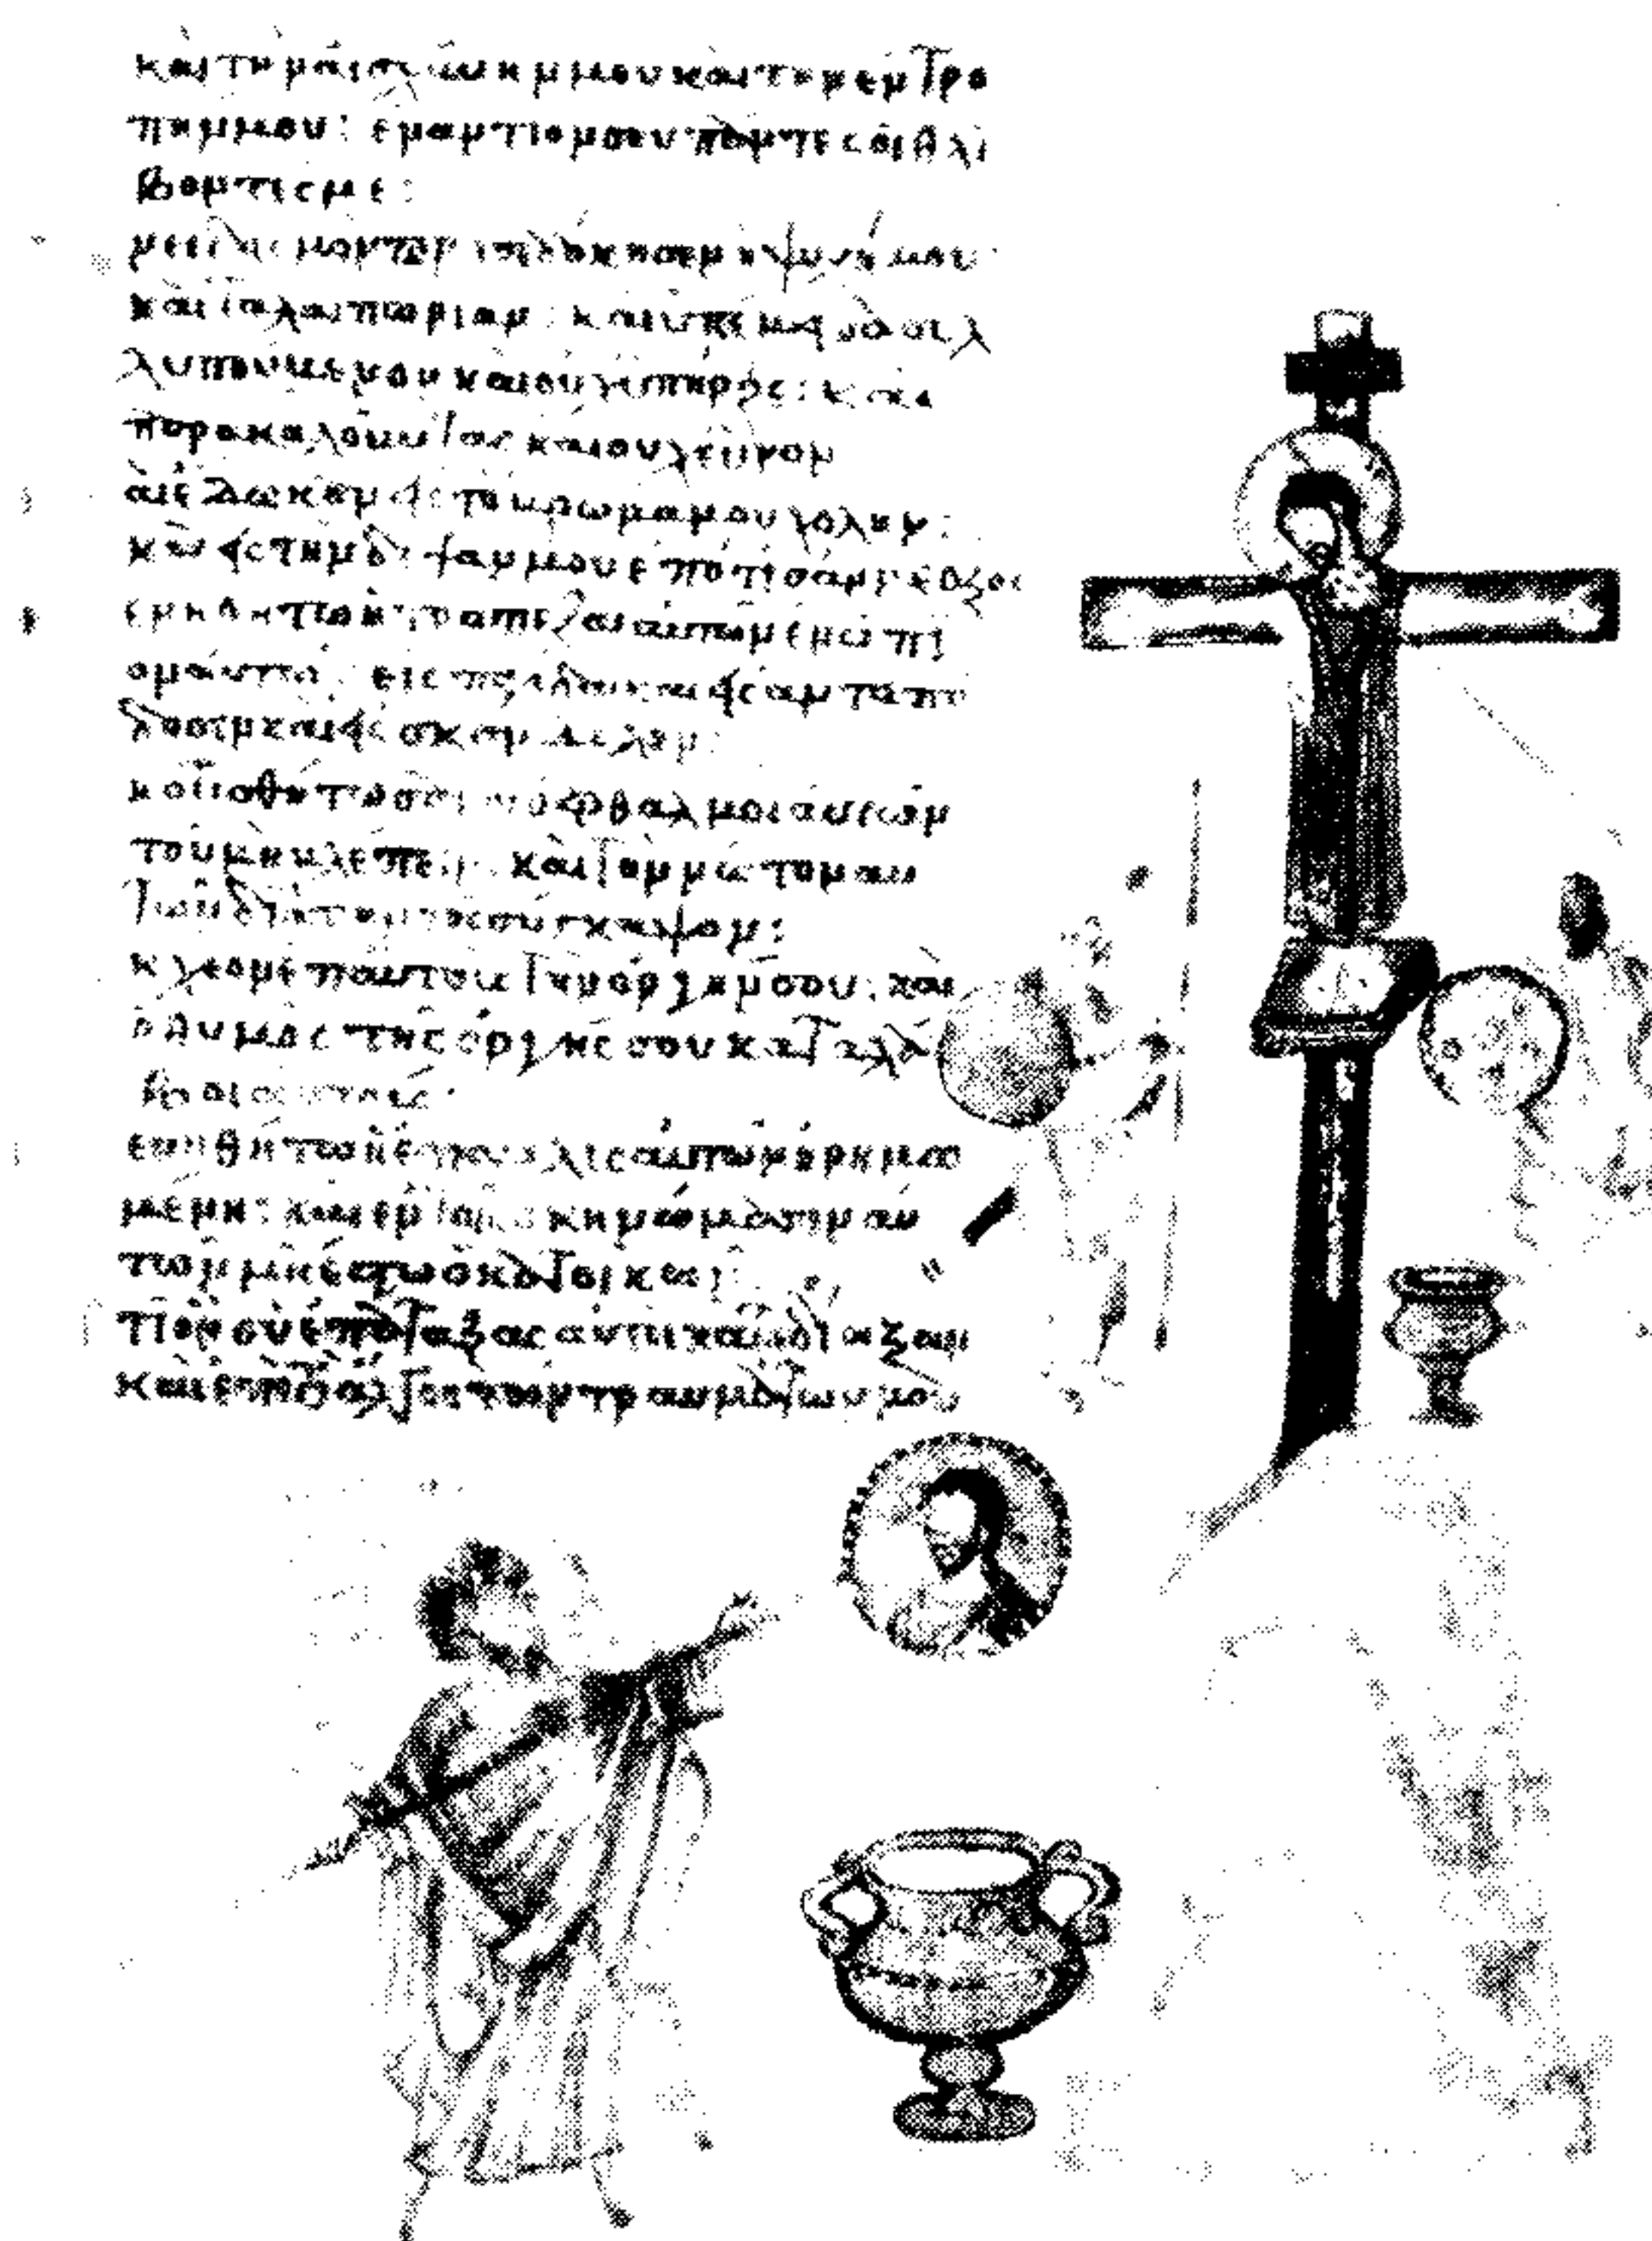 καὶ τὴν αἰσχύνην μου καὶ τὴν ἐντρο
πήν μου: ἐναντίον σου πάντες οἱ θλί
βοντές με:
νειδισμὸν προσεδόκησεν ἡ ψυχή μου
καὶ ταλαιπωρίαν: καὶ ὑπέμεινα συλ
λυπούμενον καὶ οὐχ ὑπῆρξε: καὶ
παρακαλοῦντας καὶ οὐχ εὗρον
αὶ ἔδωκαν εἰς τὸ βρῶμά μου χολήν:
καὶ εἰς τὴν δίψαν μου ἐπότισάν με ὄξος
ενηθήτω ἡ τράπεζα αὐτῶν ἐνώπι
ον αὐτῶν: εἰς παγίδα καὶ εἰς ἀνταπό
δοσιν καὶ εἰς σκάνδαλον:
κοτισθήτωσαν οἱ ὀφθαλμοὶ αὐτῶν
τοῦ μὴ βλέπειν: καὶ τὸν νῶτον αὐ
τῶν διὰ παντὸς σύγκαμψον:
κχεον ἐπ αὐτοὺς τὴν ὀργήν σου: καὶ
ὁ θυμὸς τῆς ὀργῆς σου καταλά
βοι αὐτούς:
ενηθήτω ἡ ἔπαυλις αὐτῶν ἠρημω
μένη: καὶ ἐν τοῖς σκηνώμασιν αὐ
τῶν μὴ ἔστω ὁ κατοικῶν:
τι ὃν σὺ ἐπάταξας αὐτοὶ κατεδίωξαν
καὶ ἐπὶ τὸ ἄλγος τῶν τραυμάτων μου